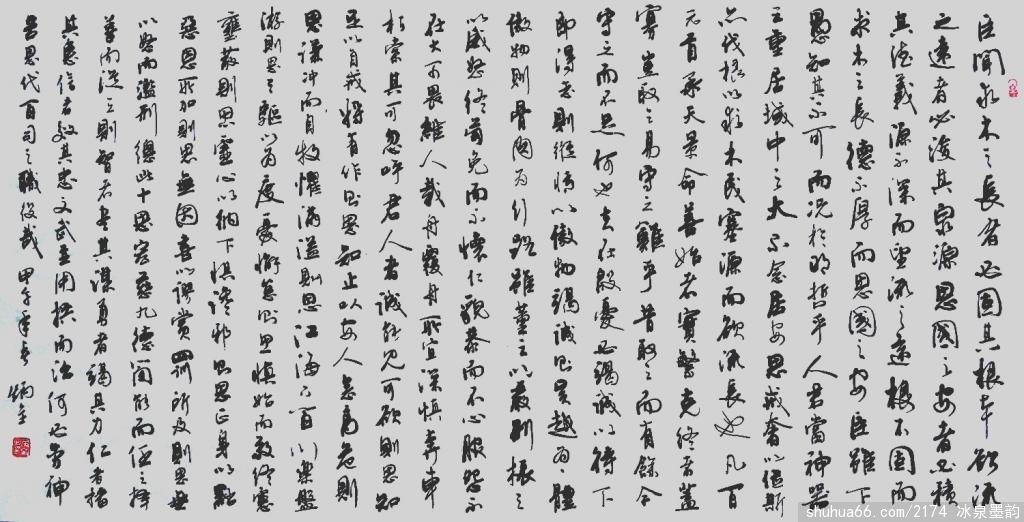 臣聞求木之長者必固其根本欲流
之遠者必浚其泉源思國之安者必積
其德義源不深而望流之遠根不固而
求木之長德不厚而思國之安臣雖下
愚知其不可而況於明哲乎人君當神器
之重居域中之大不念居安思戒奢以儉斯
亦伐根以求木茂塞源而欲流長也凡百
元首承天景命善始者實繁克終者蓋
寡豈取之易守之難乎昔取之而有餘今
守之而不足何也夫在殷憂必竭誠以待下
即得志則縱情以傲物竭誠則吴越為一體
傲物則骨肉為行路雖董之以嚴刑振之
以威怒終苟免而不懷仁貌恭而不心服怨不
在大可畏惟人載舟覆舟所宜深慎奔車
朽索其可忽乎君人者誠能見可欲則思知
足以自戒將有作則思知止以安人念高危則
思謙沖而自牧懼滿溢則思江海下百川樂盤
游則思三驅以為度憂懈怠則思慎始而敬終慮
壅蔽則思虛心以納下懼讒邪則思正身以黜
惡恩所加則思無因喜以謬賞罰所及則思無
以怒而濫刑總此十思宏慈九德簡能而任之擇
善而從之則智者盡其謀勇者竭其力仁者播
其惠信者效其忠文武並用拱而治何必勞神
苦思代百司之職役哉 年春
shuhua66.com/2174 冰泉墨韵